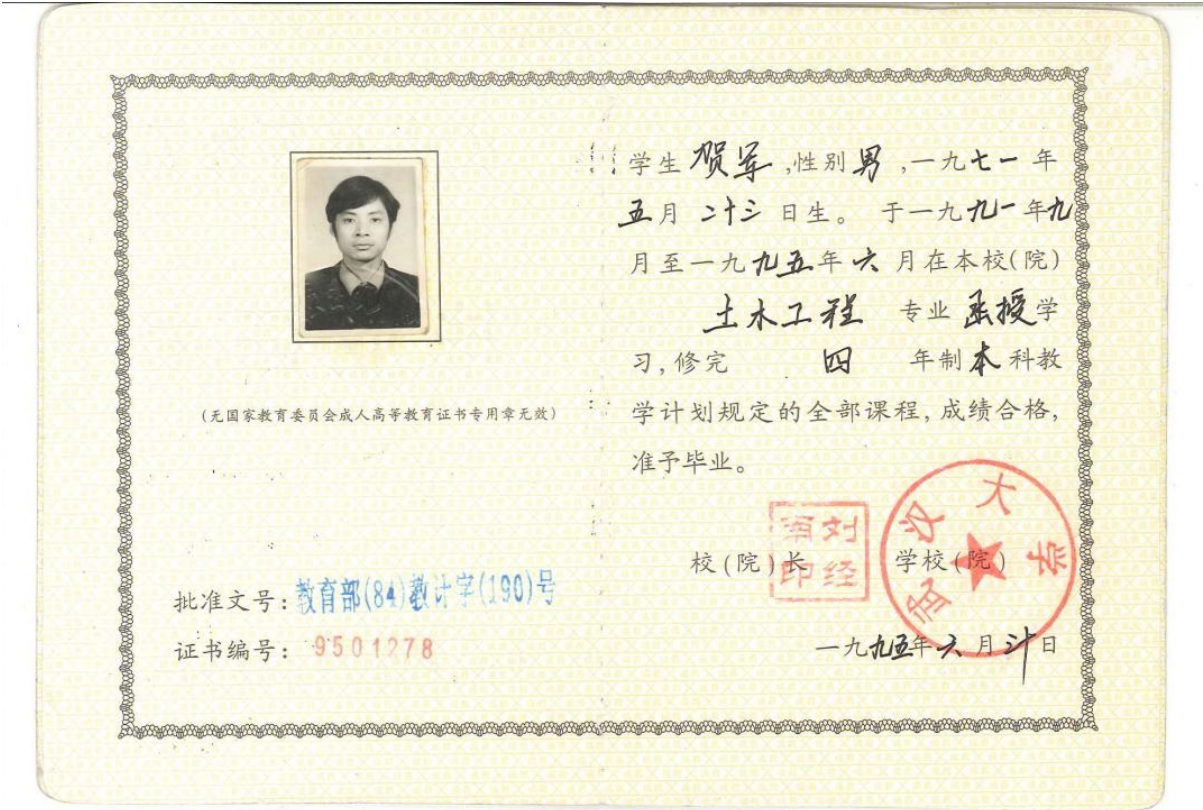 (无国家教育委员会成人高等教育证书专用章无效)
批准文号：教育部(84)教计字(190)号
证书编号：9501278
学生 贺军 ,性别 男 ,一九七一年
五月 二十三 日生。 于一九九一年九
月至一九九五年六月在本校(院)
土木工程 专业 函授学
习,修完 四 年制本科教
学计划规定的全部课程,成绩合格,
准予毕业。
校(院)长
刘经南印
学校(院)
武汉大学
一九九五年六月 日